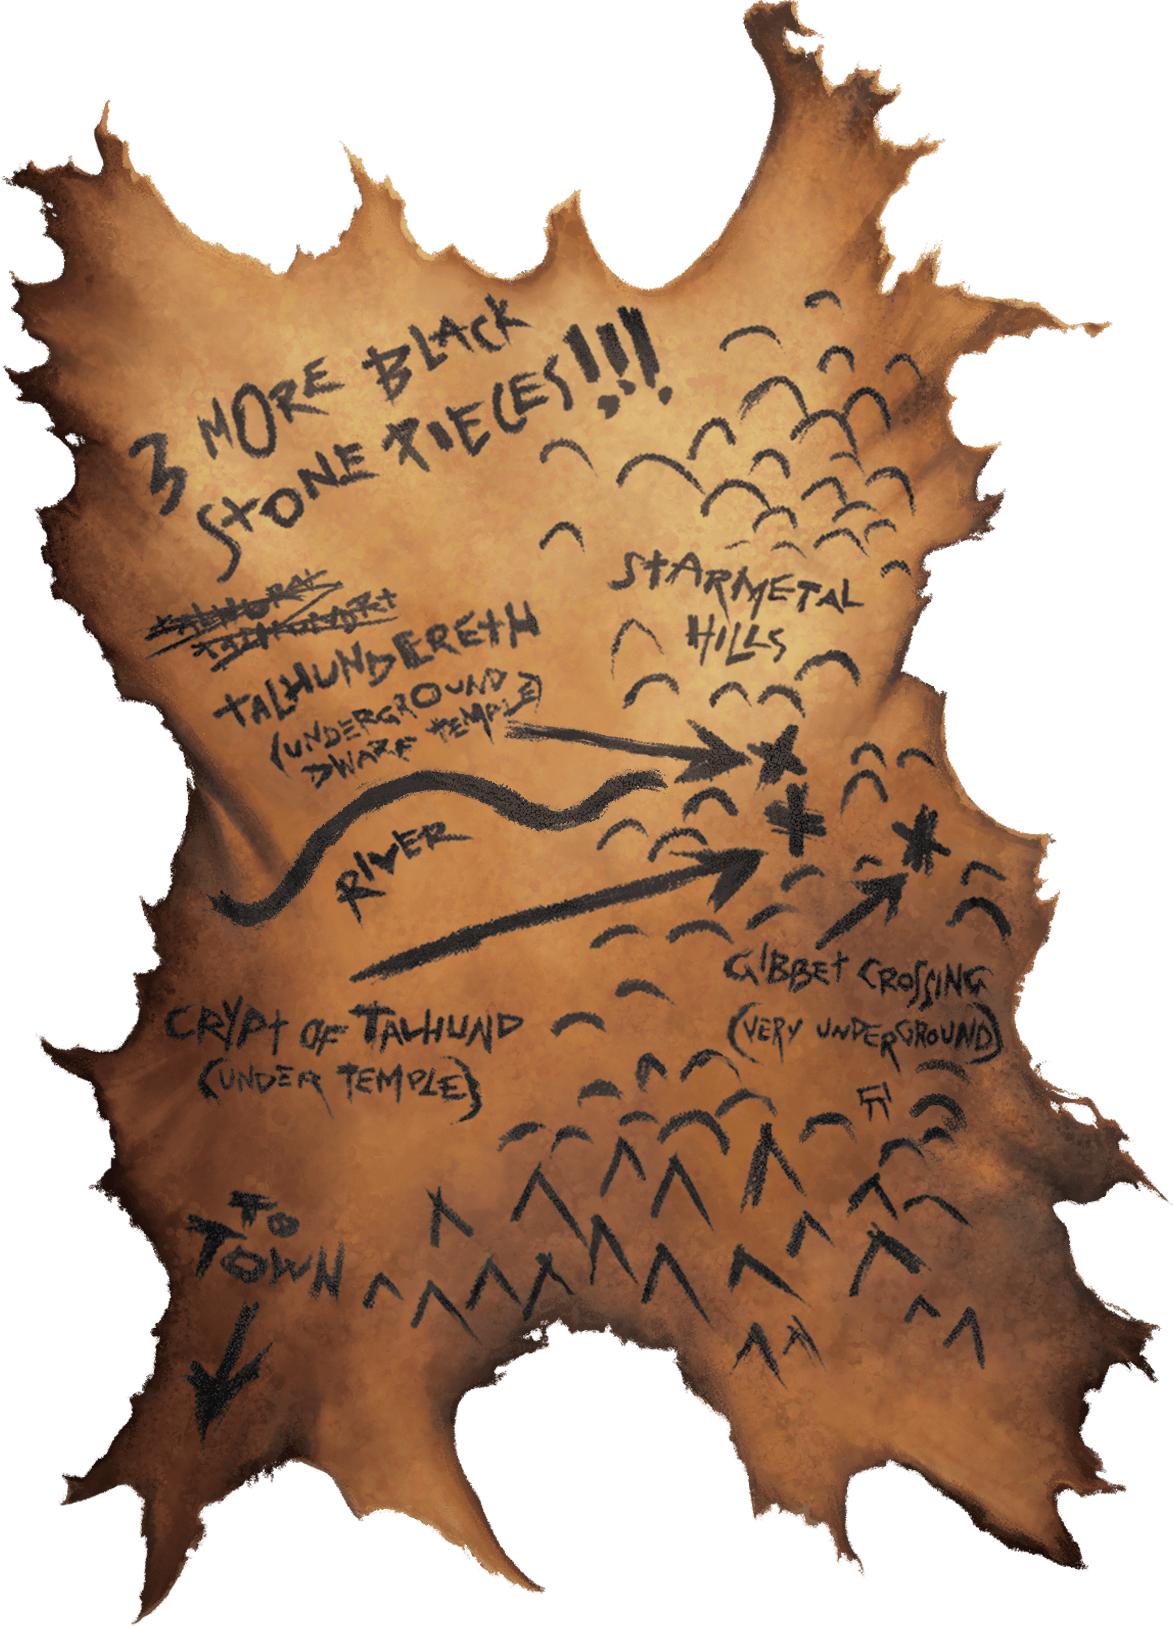 3 MORE BLACK
STONE PIECES!!!
STARMETAL
HILLS
TALHUNDERETH
(UNDERGROUND
DWARF TEMPLE)
RIVER
GIBBET CROSSING
(VERY UNDERGROUND)
CRYPT OF TALHUND
(UNDER TEMPLE)
TO
TOWN